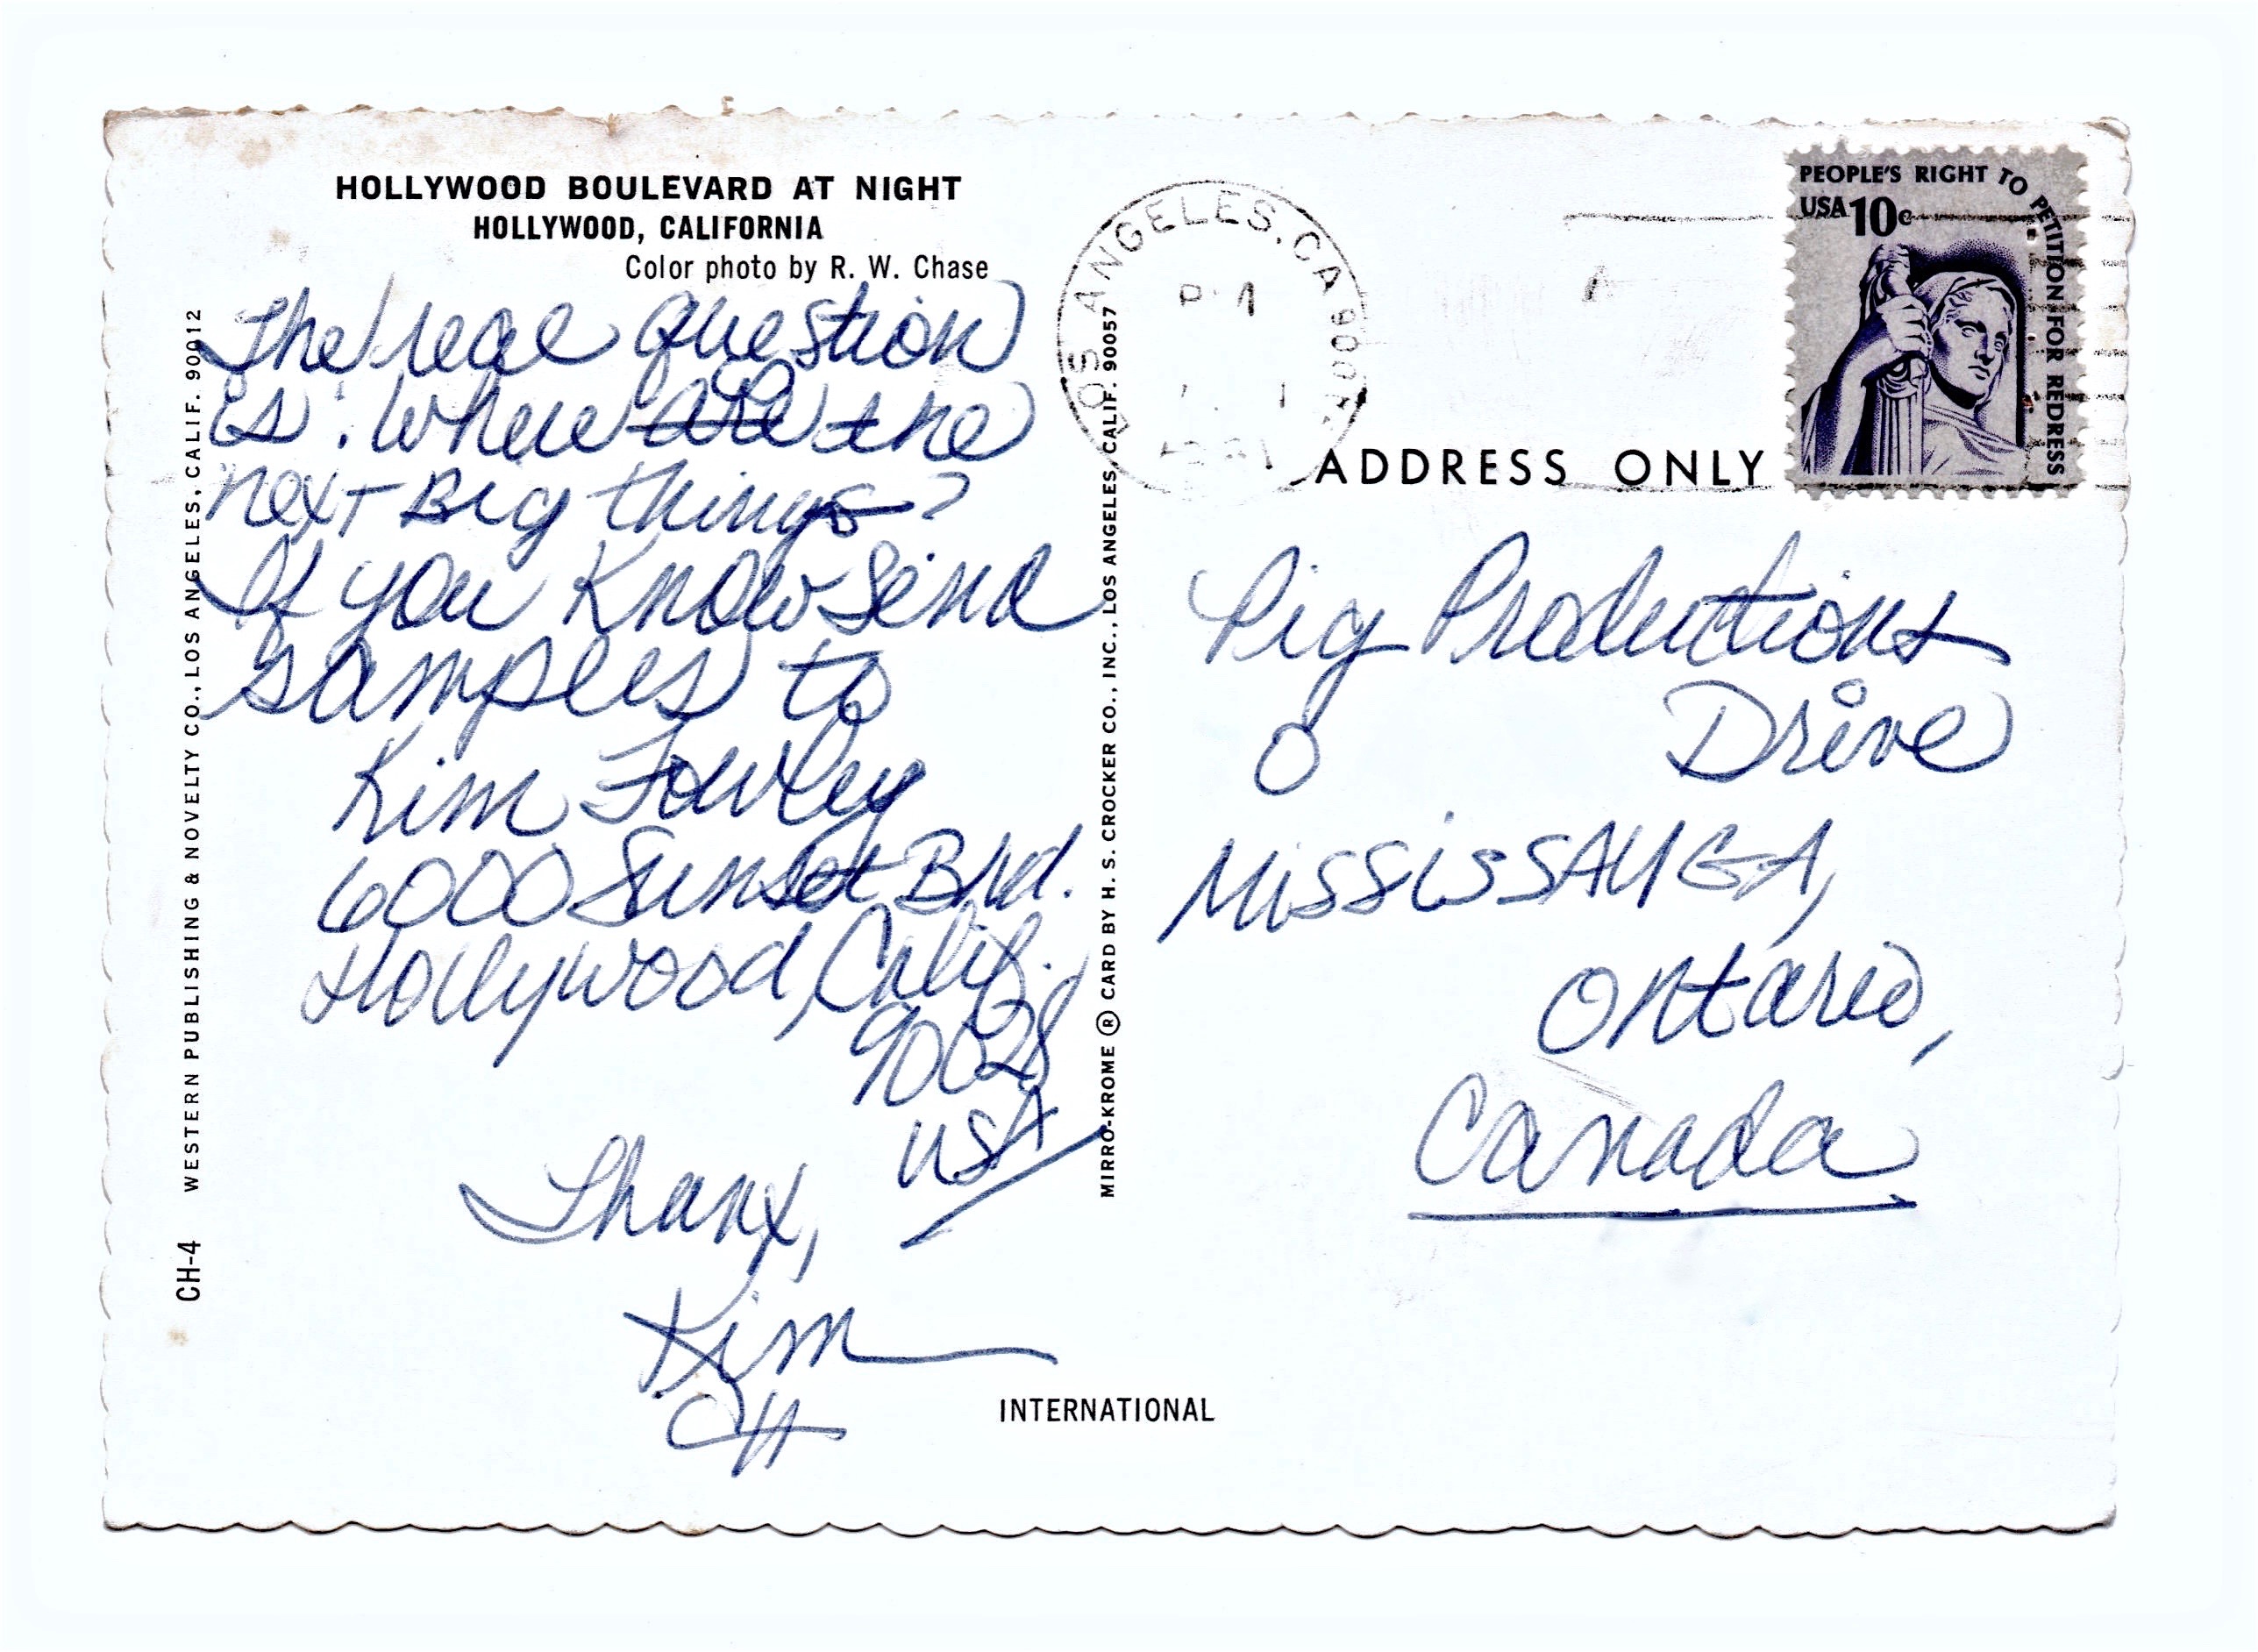 HOLLYWOOD BOULEVARD AT NIGHT
HOLLYWOOD, CALIFORNIA
Color photo by R. W. Chase
The real question
is: where are the
next Big things?
If you know send
samples to
Kim Fowley
6000 Sunset Blvd.
Hollywood, Calif.
90028
USA
Thanx,
Kim
CH-4 WESTERN PUBLISHING & NOVELTY CO., LOS ANGELES, CALIF. 90012
MIRRO-KROME ® CARD BY H. S. CROCKER CO., INC., LOS ANGELES, CALIF. 90057
INTERNATIONAL
LOS ANGELES, CA 900
PM
PEOPLE'S RIGHT TO PETITION FOR REDRESS
USA 10c
ADDRESS ONLY
Pig Productions
Drive
MISSISSAUGA,
Ontario,
Canada